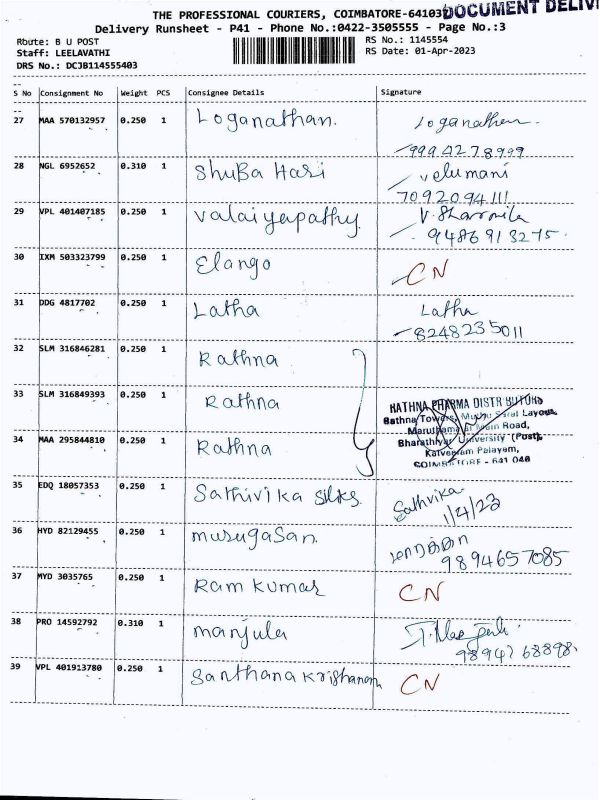 THE PROFESSIONAL COURIERS, COIMBATORE-64103
DOCUMENT DELIV
Delivery Runsheet - P41 - Phone No.:0422-3505555 - Page No.:3
Route: B U POST RS No.: 1145554
Staff: LEELAVATHI RS Date: 01-Apr-2023
DRS No.: DCJB114555403
S No Consignment No Weight PCS Consignee Details Signature
27 MAA 570132957 0.250 1 Loganathan. Loganathan.
28 NGL 6952652 0.310 1 Shuba Hari Velumani
7092094111
29 VPL 401407185 0.250 1 Valaiyapathy V. Sharmila
9486913275.
30 IXM 503323799 0.250 1 Elango CN
31 DDG 4817702 0.250 1 Latha Latha
8248235011
32 SLM 316846281 0.250 1 Rathna
33 SLM 316849393 0.250 1 Rathna
RATHNA PHARMA DISTRIBUTORS
Rathna Towers, Muthu Saral Layout,
Maruthamalai Main Road,
34 MAA 295844810 0.250 1 Rathna
Bharathiyar University (Post),
Kalveeram Palayam,
COIMBATORE - 641 046
35 EDQ 18057353 0.250 1 Sathivika Silks Sathvika
1/4/23
36 HYD 82129455 0.250 1 murugasan.
9894657085
37 MYD 3035765 0.250 1 Ram Kumar CN
38 PRO 14592792 0.310 1 manjula
39 VPL 401913780 0.250 1 Santhana Krishanan CN